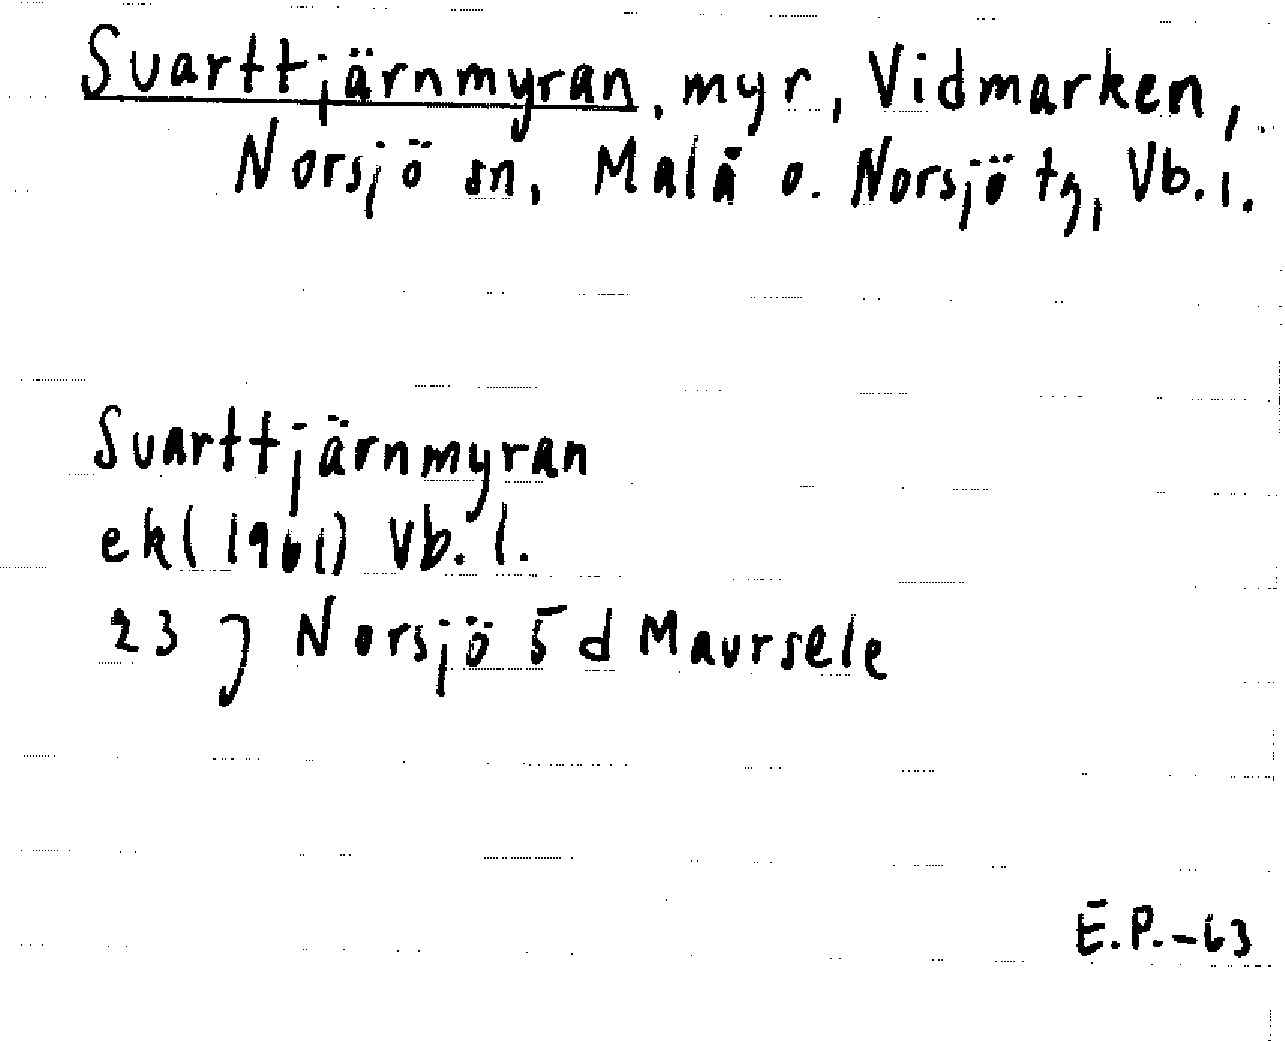 Svarttjärnmyran, myr, Vidmarken,
Norsjö sn, Malå o. Norsjö tg, Vb. l.
Svarttjärnmyran
ek (1961) Vb. l.
23 J Norsjö 5 d Maursele
E.P.-63